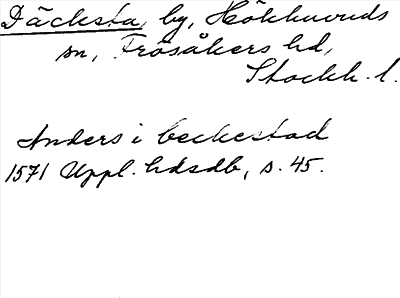 Däcksta, by, Hökhuvuds
sn, Frösåkers hd,
Stockh. l.
Anders i beckestad
1571 Uppl. hdsdb, s. 45.